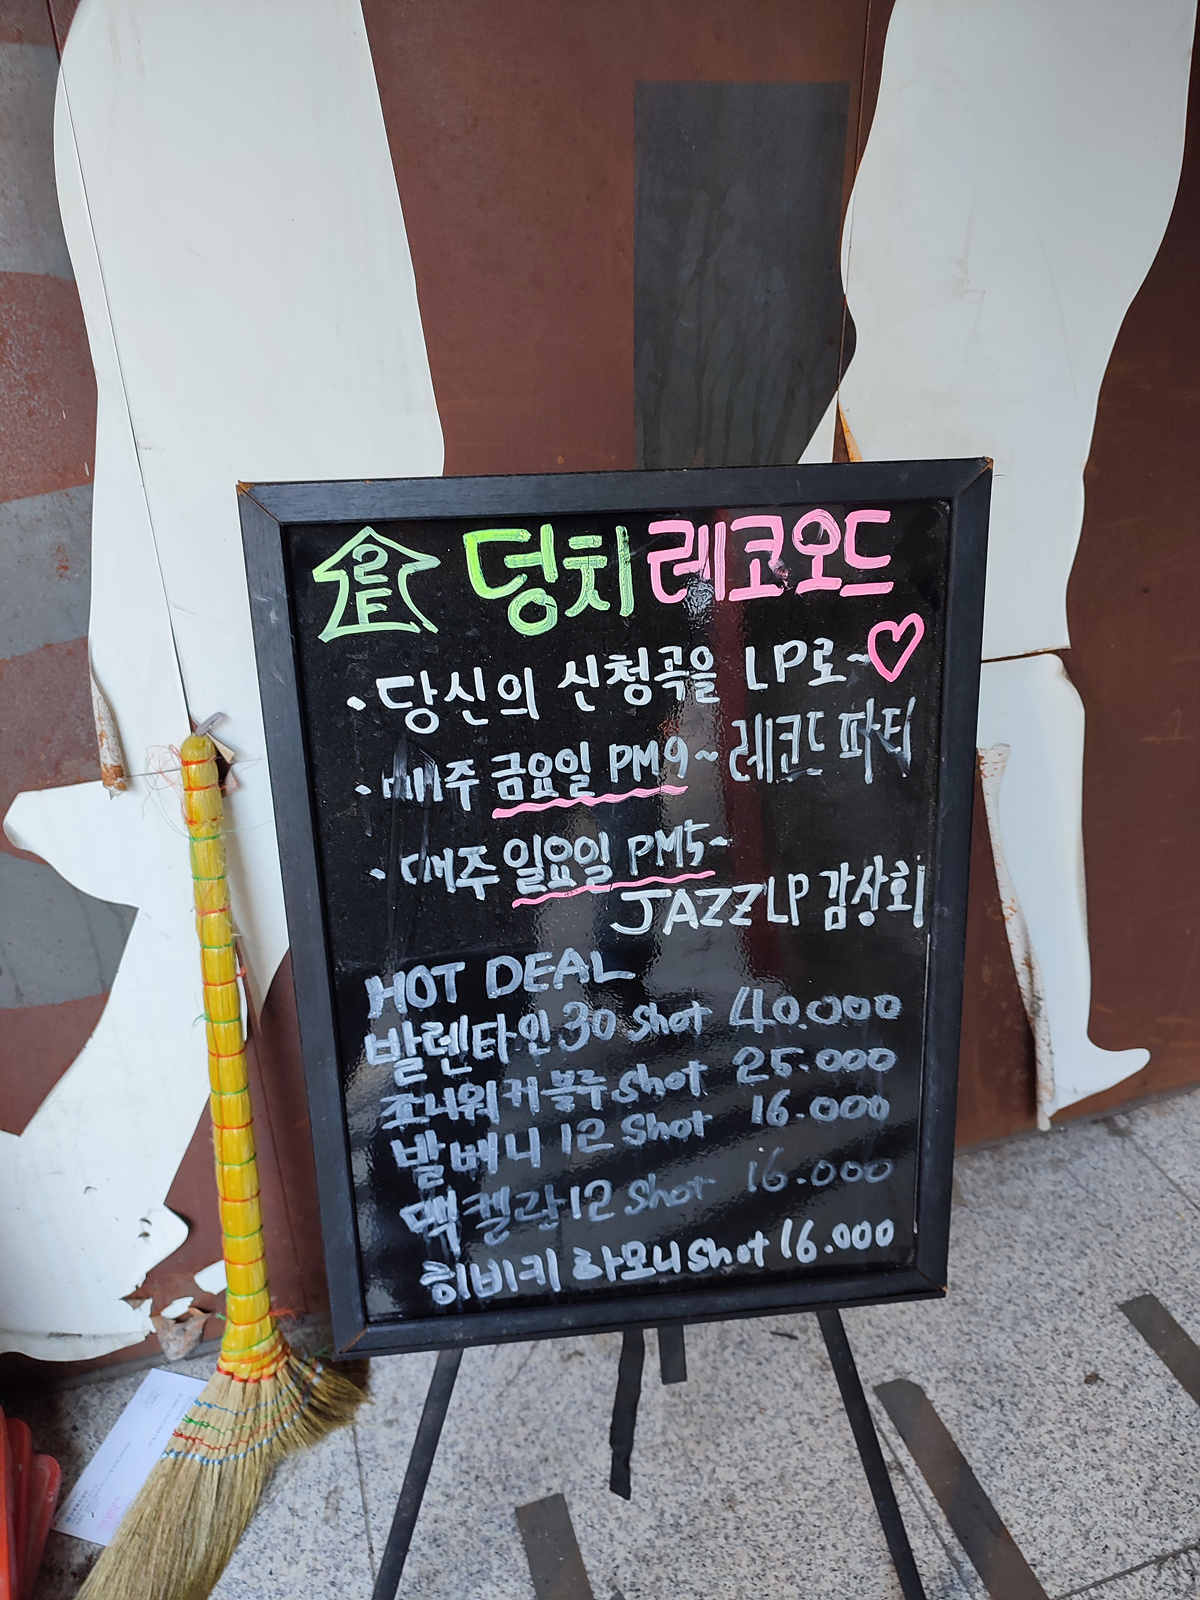 2F 덩치 레코오드
· 당신의 신청곡을 LP로~♡
· 매주 금요일 PM9~ 레코드 파티
· 매주 일요일 PM5~
JAZZ LP 감상회
HOT DEAL
발렌타인 30 shot 40.000
조니워커 블루 shot 25.000
발베니 12 shot 16.000
맥켈란 12 shot 16.000
히비키 하모니 shot 16.000